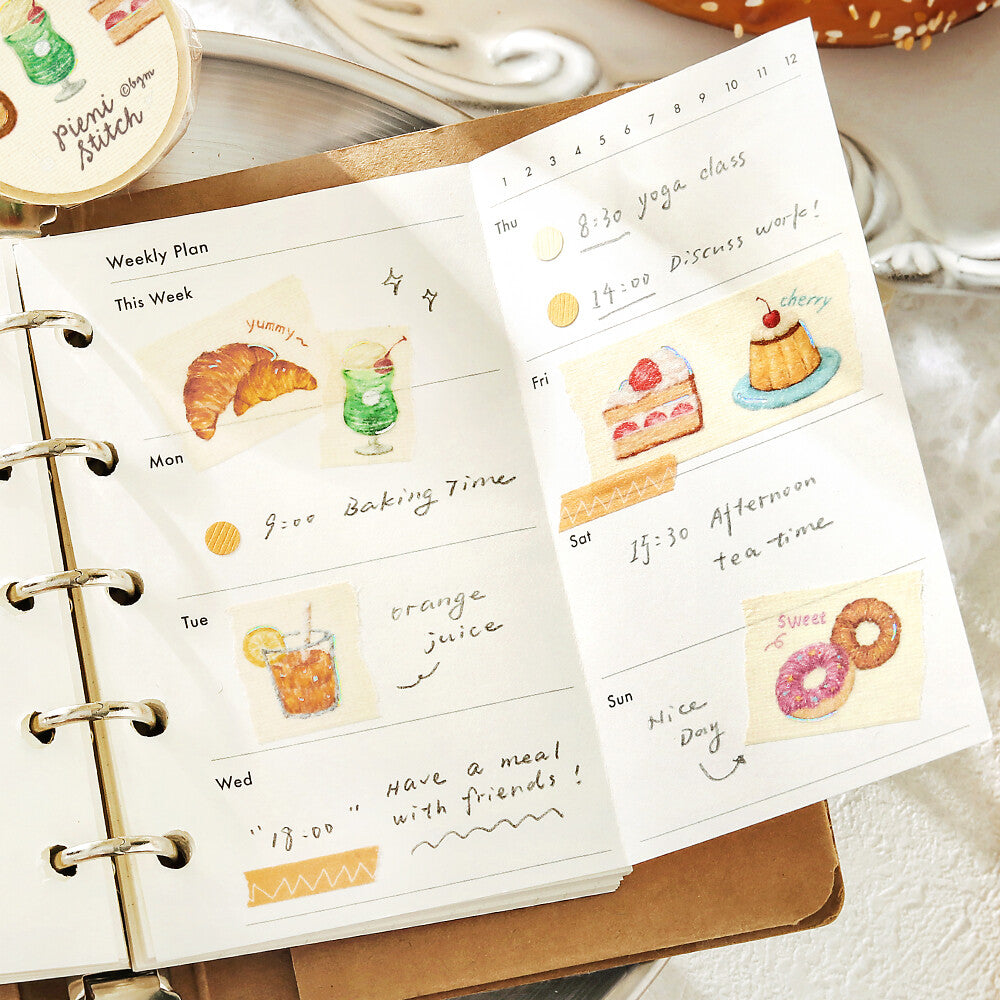 Pieni
Stitch
©bgm
Weekly Plan
This Week
yummy~
Mon
9:00 Baking Time
Tue
orange
juice
Wed
"18:00"
Have a meal
with friends!
1 2 3 4 5 6 7 8 9 10 11 12
Thu
8:30 yoga class
14:00 Discuss work!
Fri
cherry
Sat
15:30 Afternoon
tea time
Sweet
Sun
Nice
Day